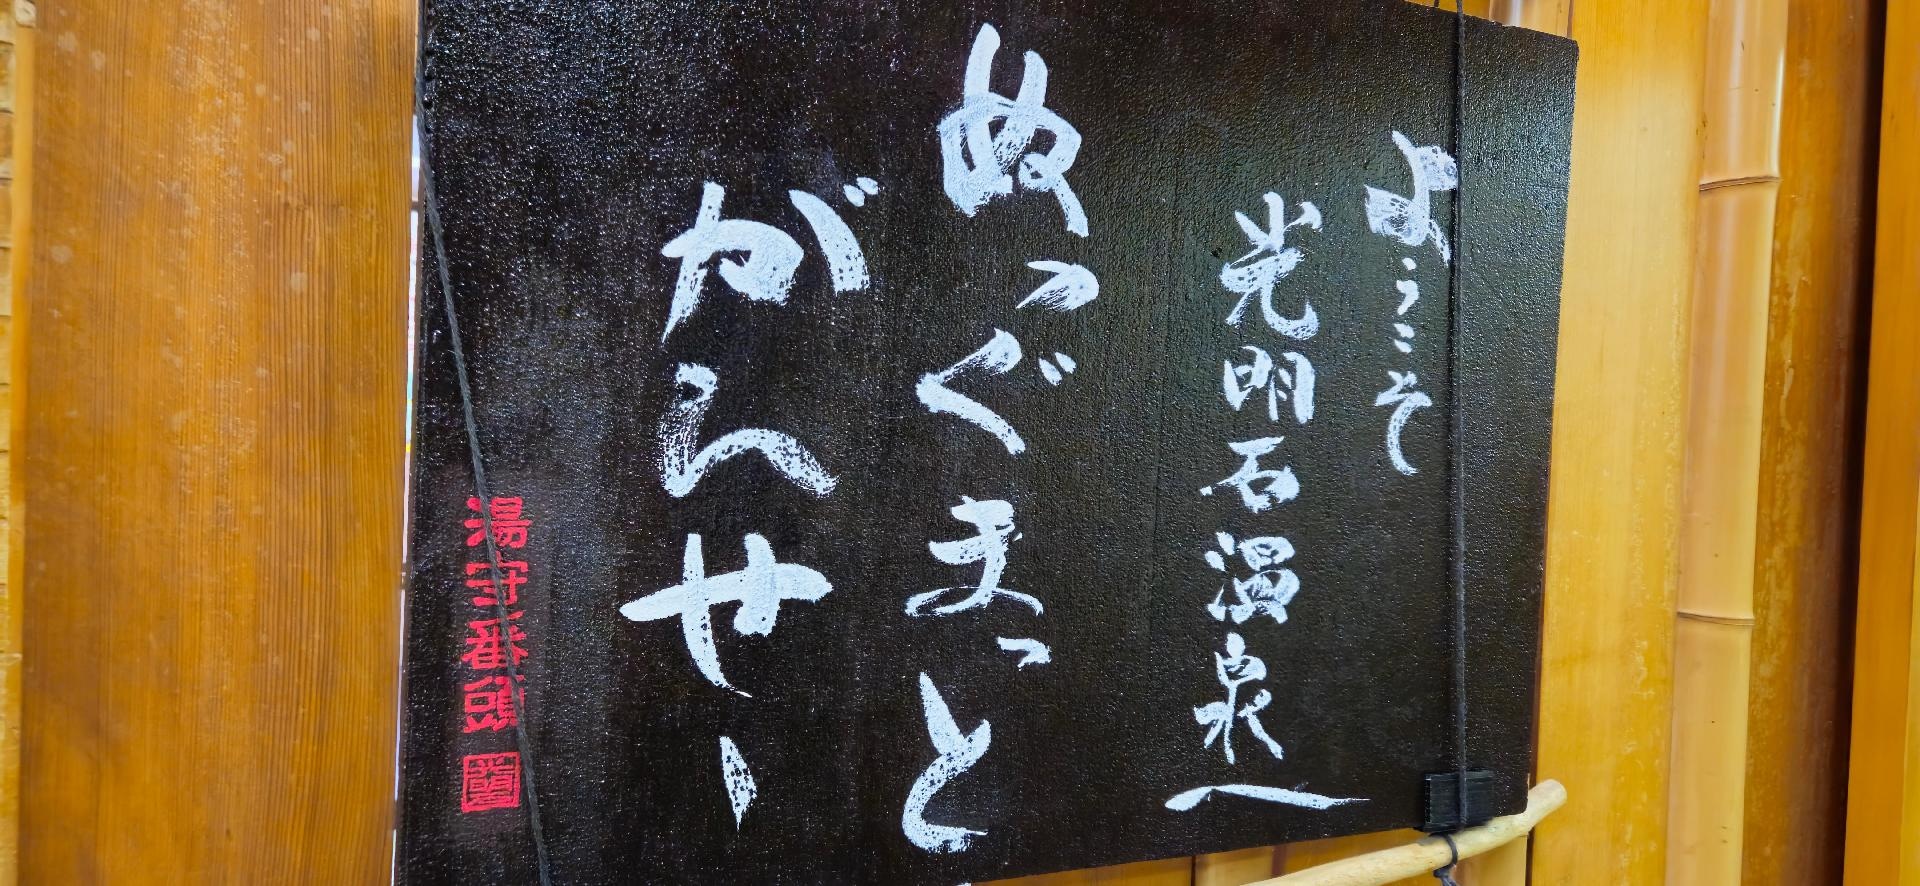 ようこそ
光明石温泉へ
ぬっぐまっと
がんせー
湯守番頭